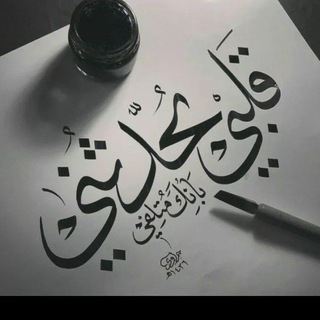 قلبي يحدّثني
بأنك متلفي